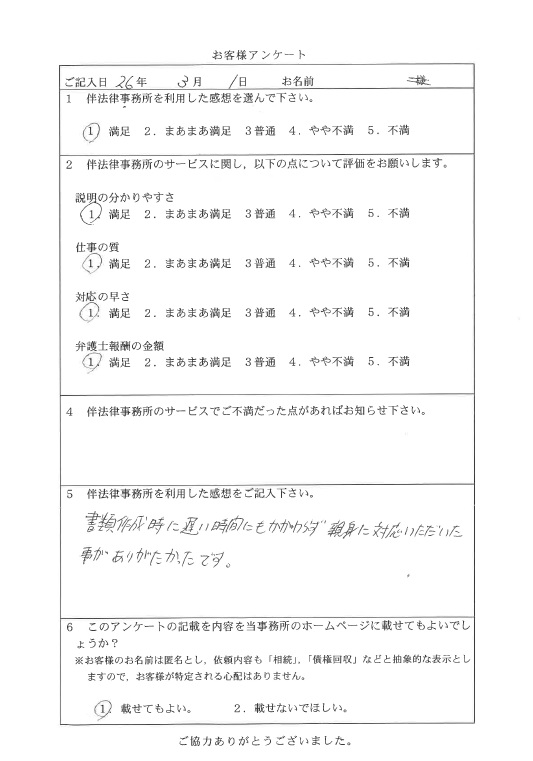 お客様アンケート
ご記入日 26年 3月 1日 お名前 様
1 伴法律事務所を利用した感想を選んで下さい。
1. 満足 2. まあまあ満足 3普通 4. やや不満 5. 不満
2 伴法律事務所のサービスに関し,以下の点について評価をお願いします。
説明の分かりやすさ
1. 満足 2. まあまあ満足 3普通 4. やや不満 5. 不満
仕事の質
1. 満足 2. まあまあ満足 3普通 4. やや不満 5. 不満
対応の早さ
1. 満足 2. まあまあ満足 3普通 4. やや不満 5. 不満
弁護士報酬の金額
1. 満足 2. まあまあ満足 3普通 4. やや不満 5. 不満
4 伴法律事務所のサービスでご不満だった点があればお知らせ下さい。
5 伴法律事務所を利用した感想をご記入下さい。
書類作成時に遅い時間にもかかわらず親身に対応いただいた
事がありがたかったです。
6 このアンケートの記載を内容を当事務所のホームページに載せてもよいでし
ょうか?
※お客様のお名前は匿名とし,依頼内容も「相続」,「債権回収」などと抽象的な表示とし
ますので,お客様が特定される心配はありません。
1. 載せてもよい。 2. 載せないでほしい。
ご協力ありがとうございました。